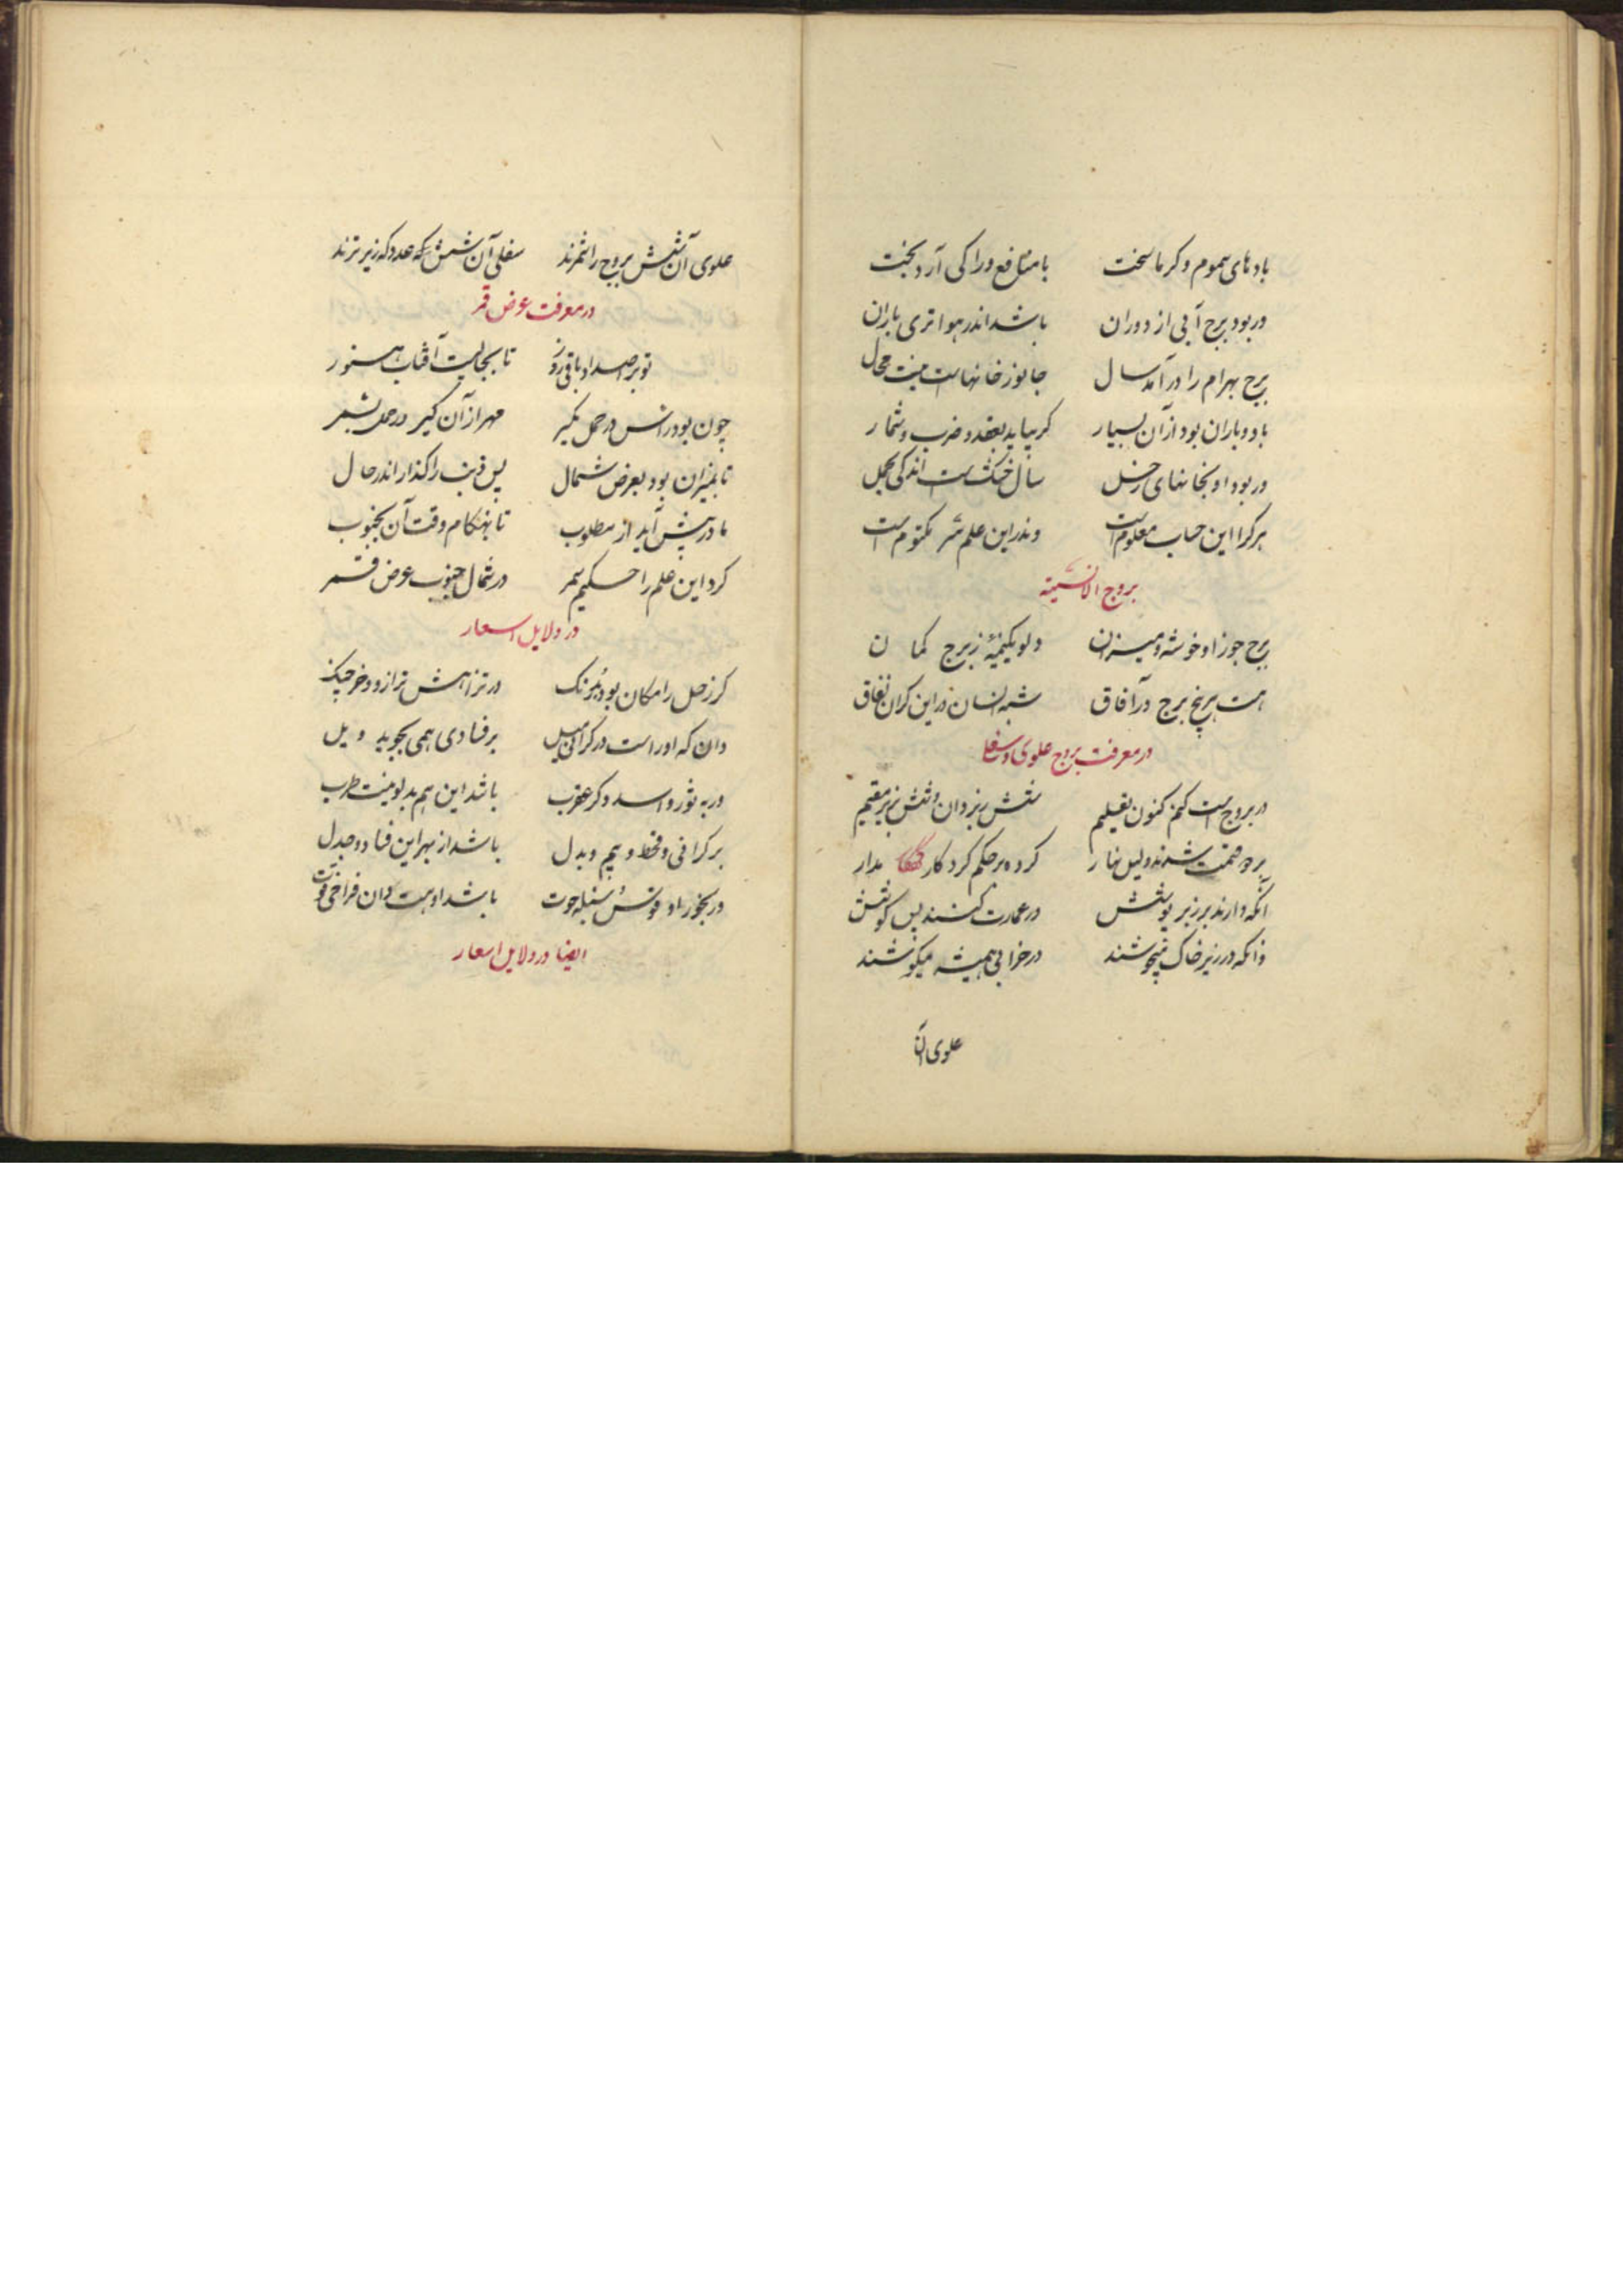 بادهای سموم و کرما سخت با منافع ورا کی آرد بخت
ور بود برج آبی از دوران باشد اندر هوا تری باران
برج بهرام را در آمد سال جانور خانهاست نیست محال
باد و باران بود از آن بسیار کر بیاید بعقد و ضرب و شمار
ور بود او بخانهای زحل سال خشکست اندکی مجمل
هر کرا این حساب معلوم است وندر این علم سر مکتوم است
بروج الانسیته
برج جوزا و خوشه و میزان دلو یکنیمهٔ ز برج کمان
هست هر پنج برج در آفاق شبه انسان در این کران نفاق
در معرفت بروج علوی و سفلی
در بروجست کنم کنون تعلیم شش زبر دان و شش بزیر مقیم
بر دو قسمت شدند لیل نهار کرده بر حکم کردکار مدار
آنکه دارند بر زبر پوشش در عمارت کنند پس کوشش
وانکه در زیر خاک میجوشند در خرابی همیشه میکوشند
علوی آن
علوی آن شش بروج را شمرند سفلی آن شش که عدد که زیر ترند
در معرفت عرض قمر
تا بجائیست آفتاب هنوز
چون بود راس در حمل بکیر مهر از آن کیر در حمل بشمر
تا بمیزان بود بعرض شمال پس ذنب را کذار اندر حال
ما در پیش آید از مطلوب تا بهنکام وقت آن بجنوب
کرد این علم را حکیم سمر در شمال جنوب عرض قمر
در دلایل اسعار
کر زحل را مکان بود در ترازو و خرچنک
دان که او راست در کرانی میل بر فسادی همی بجوید ویل
ور به ثور و اسد و کر عقرب باشد این هم بد بود نیست طرب
بر کرانی و قحط و بیم و بدل باشد از بهر این فساد و جدل
ور بجوزا و قوس سنبله حوت باشد او هست دان فراخی قوت
ایضا در دلایل اسعار